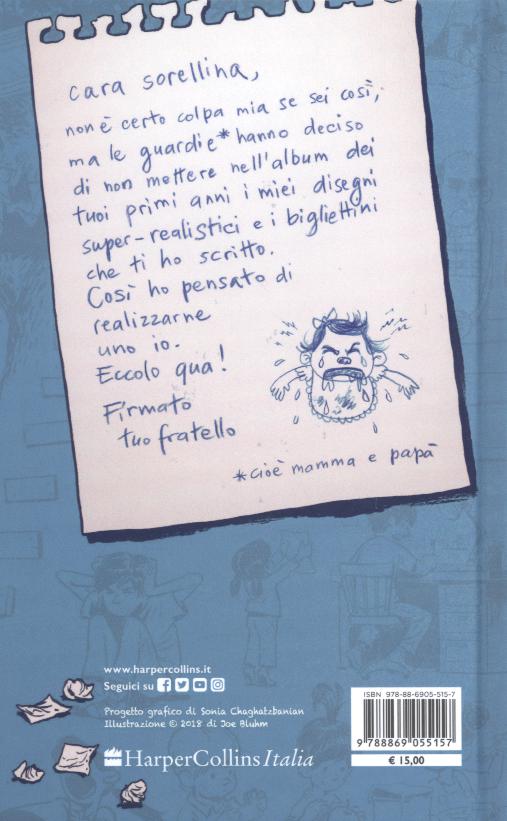 cara sorellina,
non è certo colpa mia se sei così,
ma le guardie* hanno deciso
di non mettere nell'album dei
tuoi primi anni i miei disegni
super-realistici e i bigliettini
che ti ho scritto.
Così ho pensato di
realizzarne
uno io.
Eccolo qua!
Firmato
tuo fratello
*cioè mamma e papà
www.harpercollins.it
Seguici su
Progetto grafico di Sonia Chaghatzbanian
Illustrazione © 2018 di Joe Bluhm
HarperCollins Italia
ISBN 978-88-6905-515-7
9 788869 055157
€ 15,00